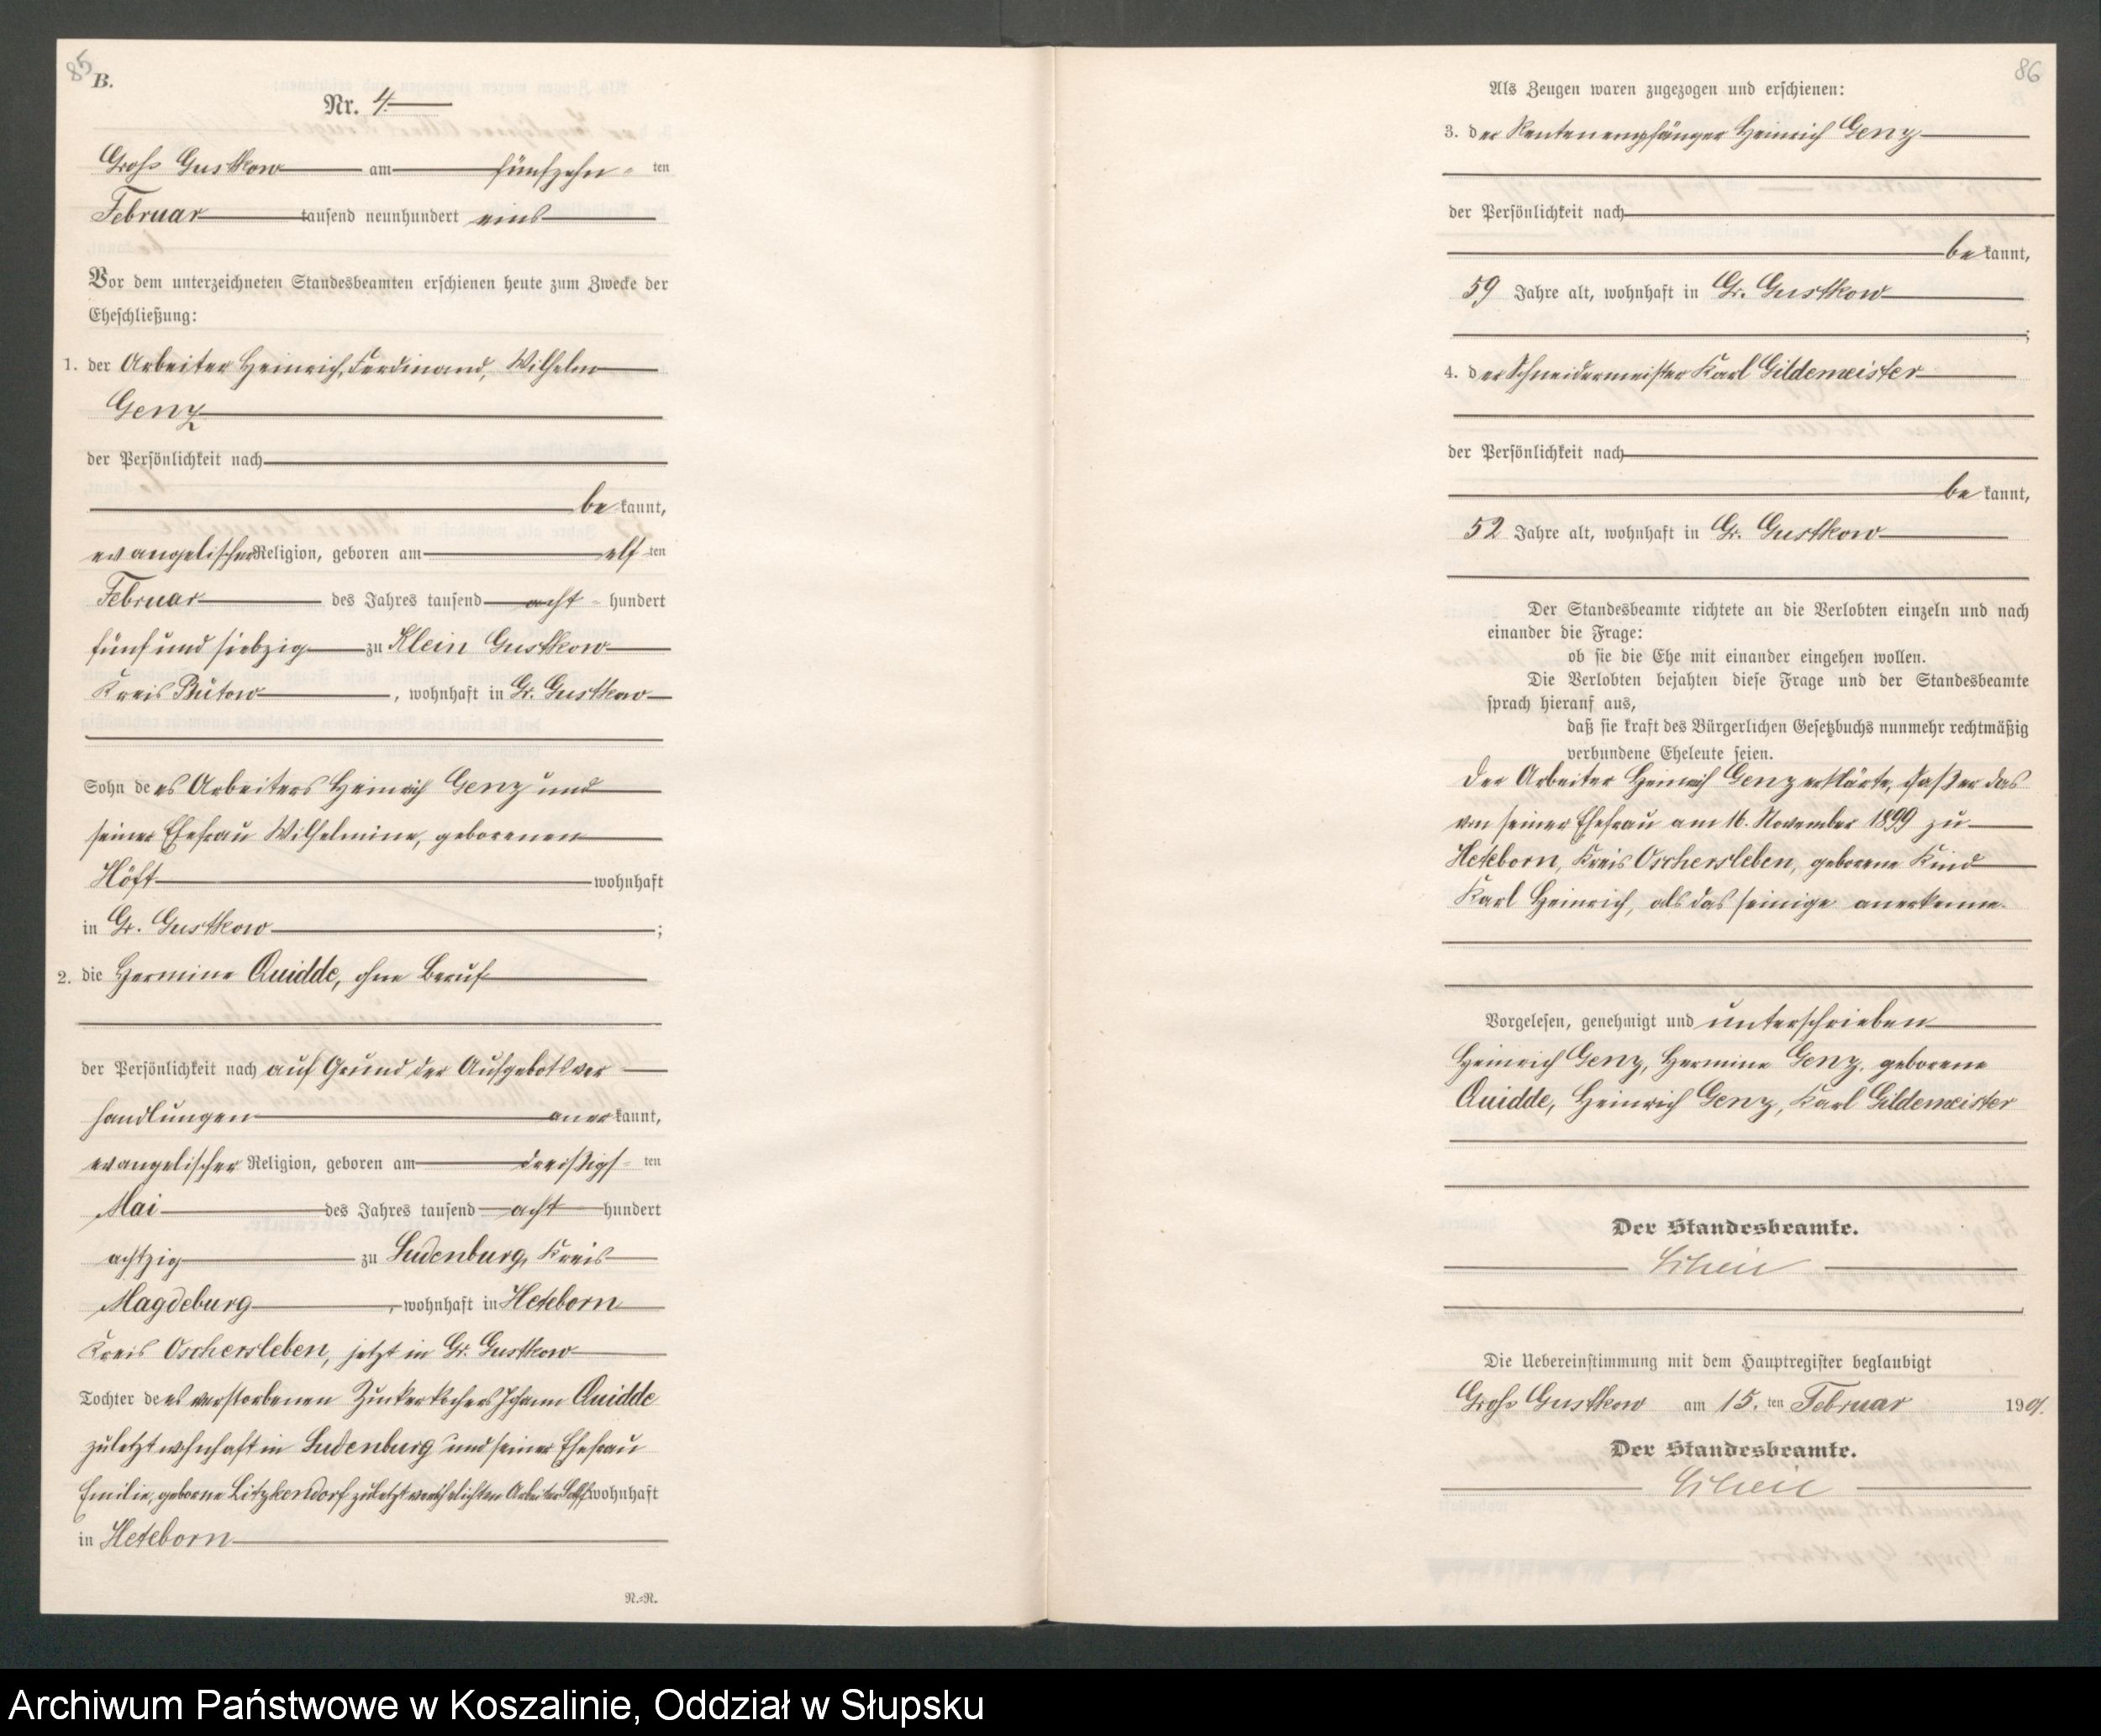 85
B.
Nr. 4
Groß Gustkow am fünfzehn ten
Februar tausend neunhundert eins
Vor dem unterzeichneten Standesbeamten erschienen heute zum Zwecke der
Eheschließung:
1. der Arbeiter Heinrich, Ferdinand, Wilhelm
Genz
der Persönlichkeit nach
be kannt,
evangelischer Religion, geboren am elf ten
Februar des Jahres tausend acht hundert
fünf und siebzig zu Klein Gustkow
Kreis Bütow, wohnhaft in Gr. Gustkow
Sohn des Arbeiters Heinrich Genz und
seiner Ehefrau Wilhelmine, geborenen
Höft wohnhaft
in Gr. Gustkow;
2. die Hermine Quidde, ohne Beruf
der Persönlichkeit nach auf Grund der Aufgebotsver
handlungen aner kannt,
evangelischer Religion, geboren am dreißigs ten
Mai des Jahres tausend acht hundert
achtzig zu Sudenburg, Kreis
Magdeburg, wohnhaft in Heteborn
Kreis Oschersleben, jetzt in Gr. Gustkow
Tochter des verstorbenen Zuckerkochers Johann Quidde
zuletzt wohnhaft in Sudenburg und seiner Ehefrau
Emilie, geborne Litzkendorf zuletzt verehelichten Arbeiter wohnhaft
in Heteborn
N.=N.
86
Als Zeugen waren zugezogen und erschienen:
3. der Rentenempfänger Heinrich Genz
der Persönlichkeit nach
be kannt,
59 Jahre alt, wohnhaft in Gr. Gustkow
;
4. der Schneidermeister Karl Gildemeister
der Persönlichkeit nach
be kannt,
52 Jahre alt, wohnhaft in Gr. Gustkow
Der Standesbeamte richtete an die Verlobten einzeln und nach
einander die Frage:
ob sie die Ehe mit einander eingehen wollen.
Die Verlobten bejahten diese Frage und der Standesbeamte
sprach hierauf aus,
daß sie kraft des Bürgerlichen Gesetzbuchs nunmehr rechtmäßig
verbundene Eheleute seien.
Der Arbeiter Heinrich Genz erklärte, daß er das
von seiner Ehefrau am 16. November 1899 zu
Heteborn, Kreis Oschersleben, geborene Kind
Karl Heinrich, als das seinige anerkenne.
Vorgelesen, genehmigt und unterschrieben
Heinrich Genz, Hermine Genz, geborene
Quidde, Heinrich Genz, Karl Gildemeister
Der Standesbeamte.
Die Uebereinstimmung mit dem Hauptregister beglaubigt
Groß Gustkow am 15. ten Februar 1901.
Der Standesbeamte.
Archiwum Państwowe w Koszalinie, Oddział w Słupsku